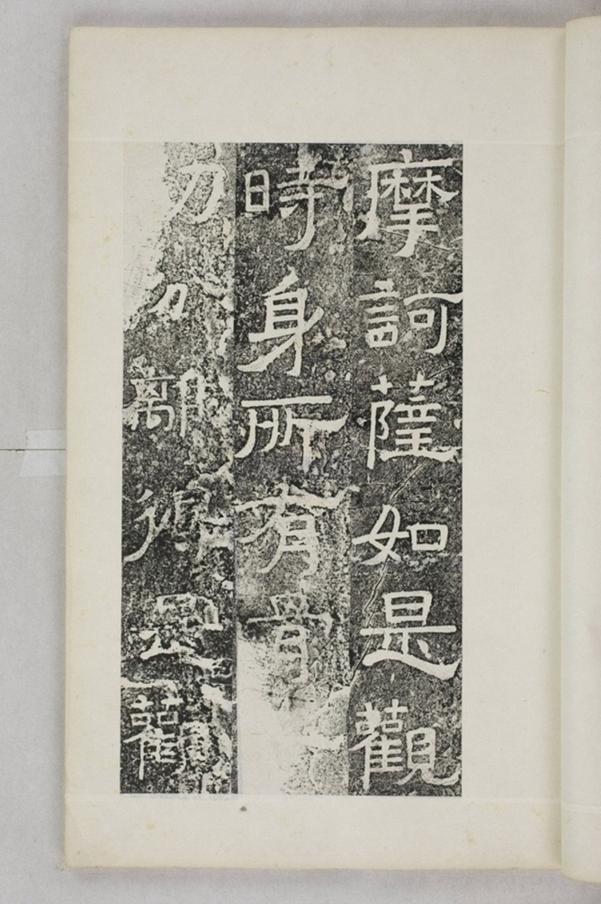 摩訶薩如是觀
時身所有骨
分分離得是觀